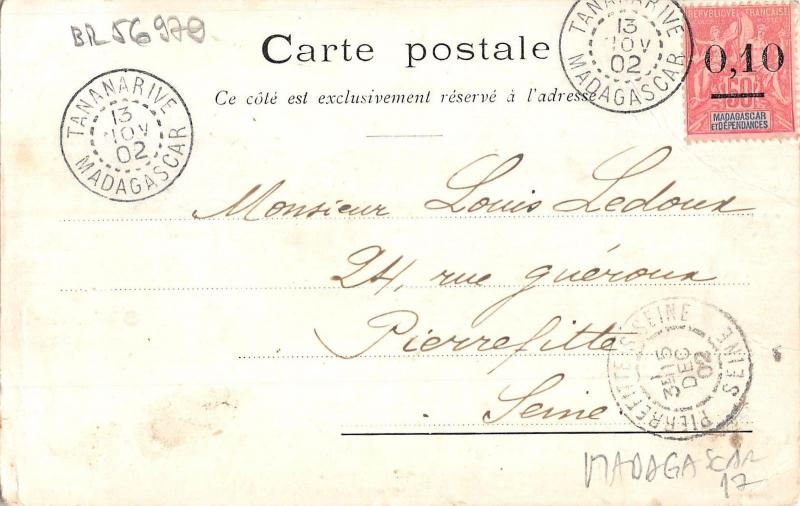 BR56970
Carte postale
Ce côté est exclusivement réservé à l'adresse
TANANARIVE
13
NOV
02
MADAGASCAR
TANANARIVE
13
NOV
02
MADAGASCAR
RÉPUBLIQUE FRANÇAISE
0,10
50
MADAGASCAR
ET DÉPENDANCES
Monsieur Louis Ledoux
24, rue guéroux
Pierrefitte
Seine
PIERREFITTE S/SEINE
15
DEC
02
SEINE
MADAGASCAR
17